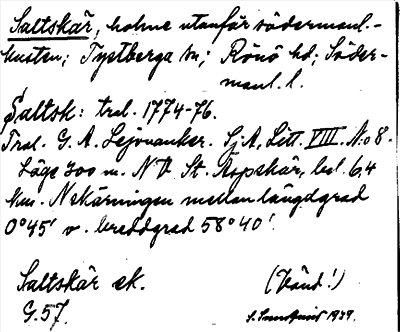 Saltskär, holme utanför södermanl.-
kusten; Tystberga sn; Rönö hd; Söder-
manl. l.
Saltsk: tral. 1774-76.
Tral. G. A. Lejonanker. Sj. A, Litt. VIII. No 8.
Läge 300 m. NV St. Aspskär, bel. 6,4
km. N skärningen mellan längdgrad
0°45' v. breddgrad 58°40'.
Saltskär ek. (Vänd!)
G. 57. 1939.